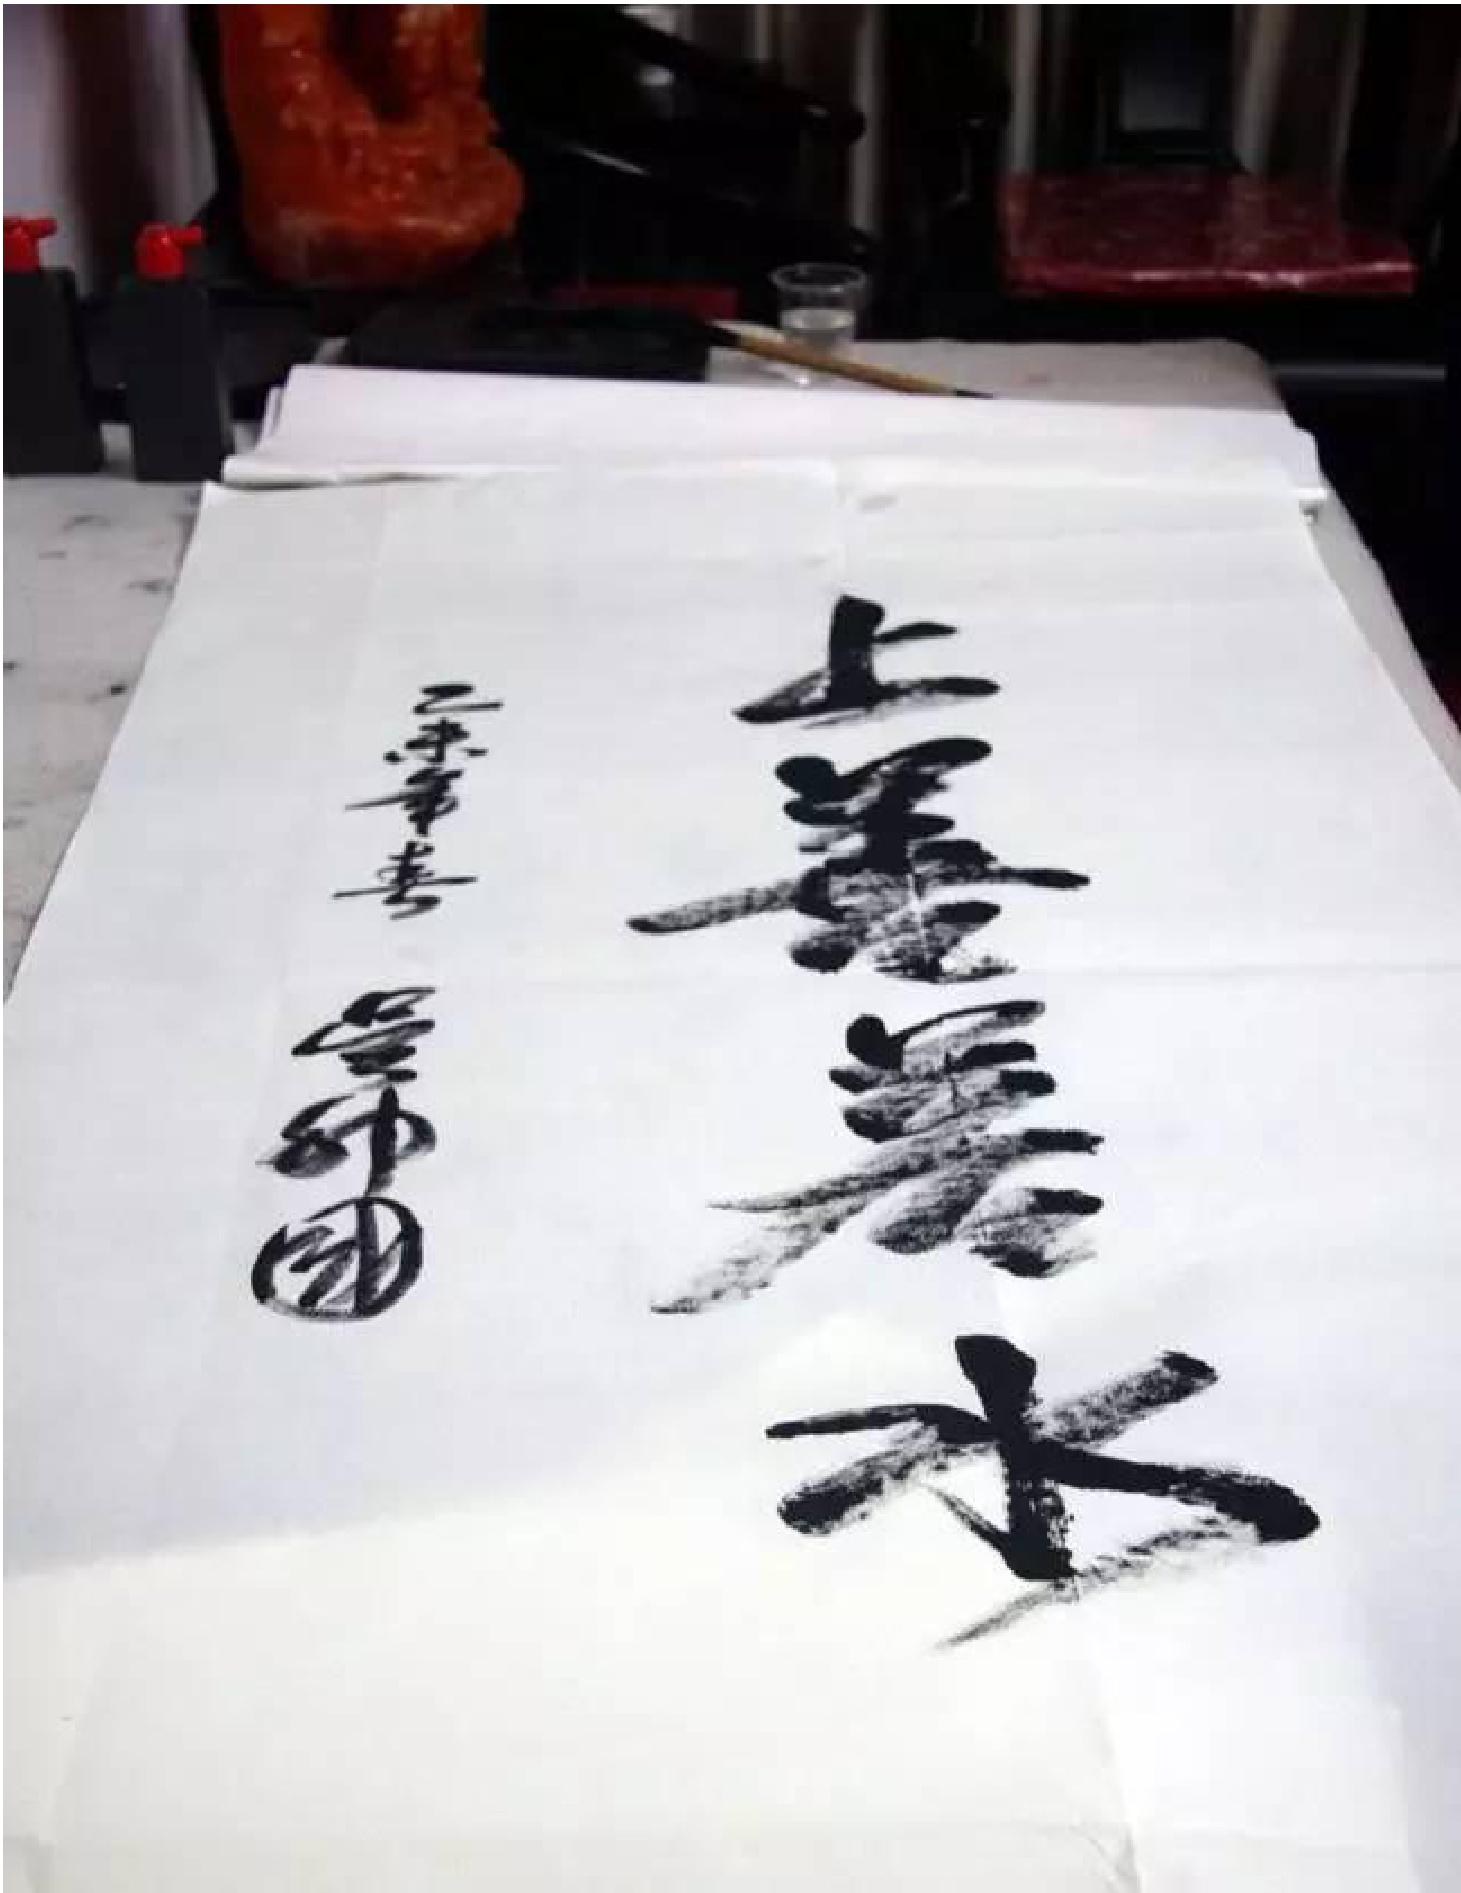 上善若水
乙未年春